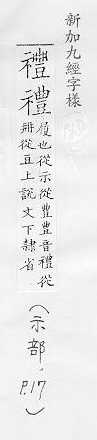 新加九經字樣
禮禮
履也從示從豊豊音禮從
冊從豆上說文下隸省
(示部, P.17)